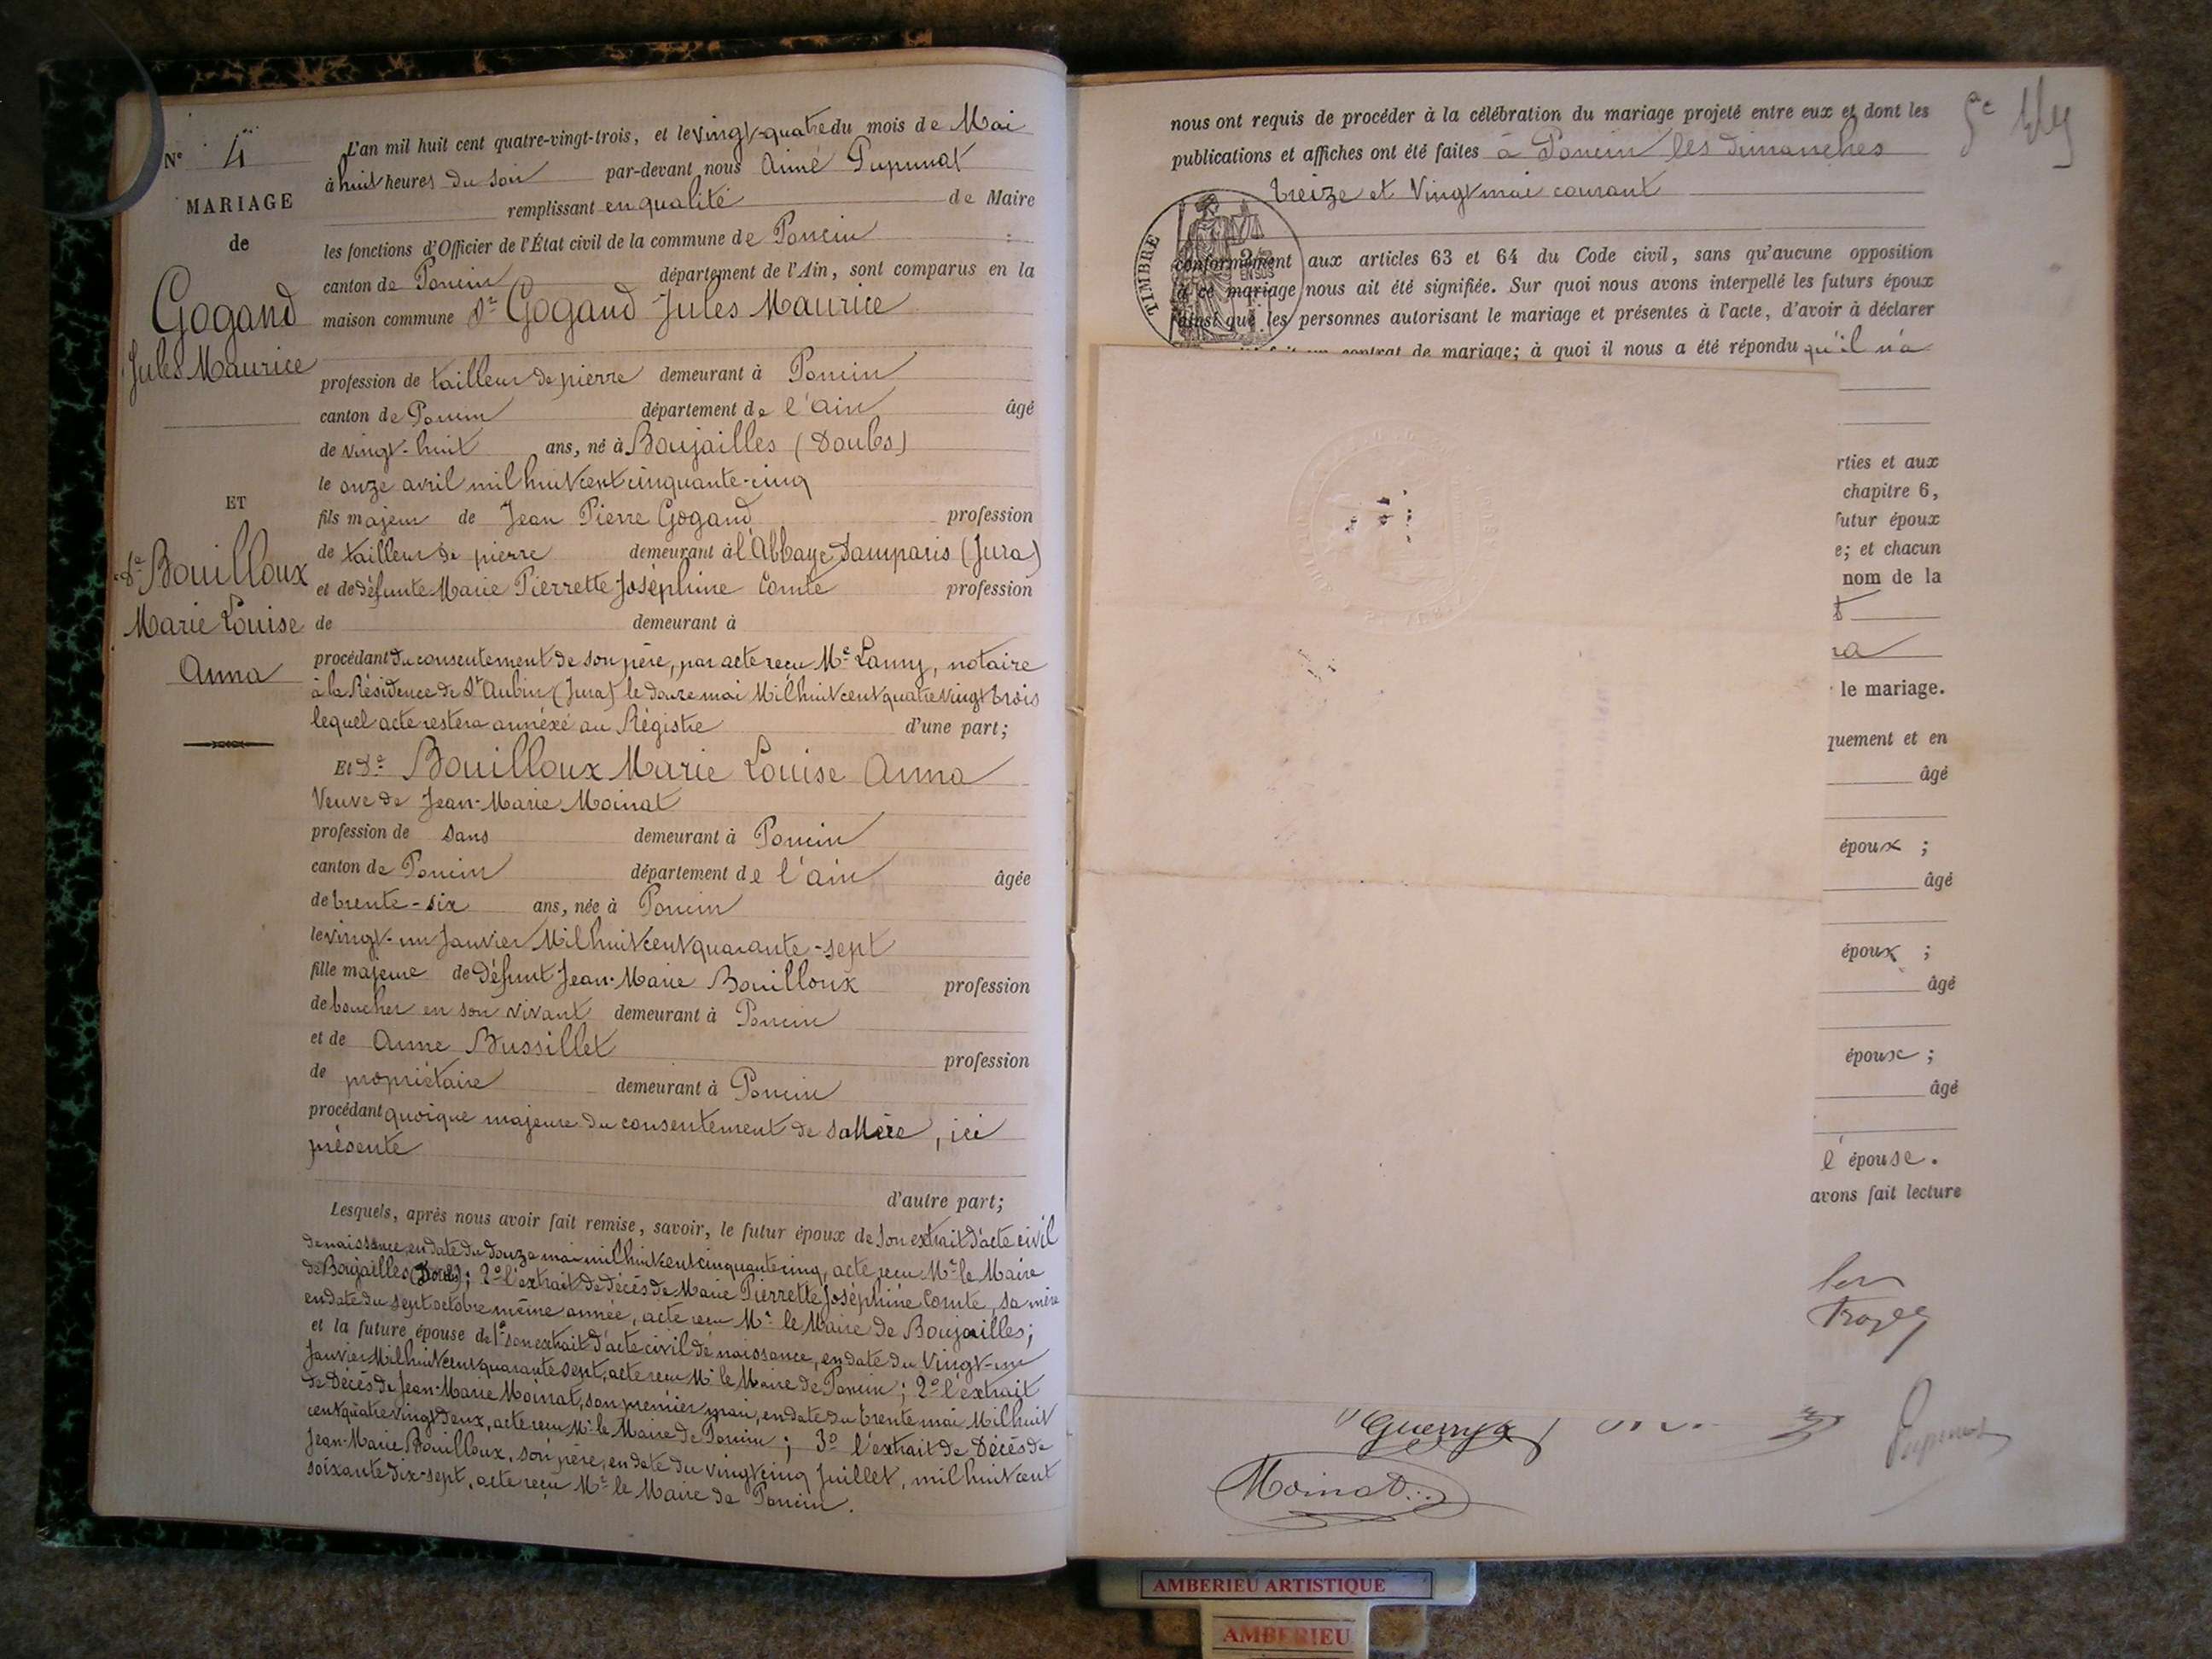 N° 4
MARIAGE
de
Gogand
Jules Maurice
ET
De Bouilloux
Marie Louise
Anna
L'an mil huit cent quatre-vingt-trois, et le vingt-quatre du mois de Mai
à huit heures du soir par-devant nous Aimé Pupunat
remplissant en qualité de Maire
les fonctions d'Officier de l'État civil de la commune de Poncin
canton de Poncin département de l'Ain, sont comparus en la
maison commune Sr Gogand Jules Maurice
profession de tailleur de pierre demeurant à Poncin
canton de Poncin département de l'ain âgé
de vingt-huit ans, né à Boujailles (Doubs)
le onze avril mil huit cent cinquante-cinq
fils majeur de Jean Pierre Gogand profession
de tailleur de pierre demeurant à l'Abbaye Damparis (Jura)
et de défunte Marie Pierrette Joséphine Comte profession
de demeurant à
procédant du consentement de son père, par acte reçu Me Lamy, notaire
à la Résidence de St Aubin (Jura) le douze mai Mil huit cent quatre vingt trois
lequel acte restera annéxé au Régistre d'une part;
Et De Bouilloux Marie Louise Anna
Veuve de Jean-Marie Moinat
profession de sans demeurant à Poncin
canton de Poncin département de l'ain âgée
de trente-six ans, née à Poncin
le vingt-un Janvier Mil huit cent quarante-sept
fille majeure de défunt Jean-Marie Bouilloux profession
de boucher en son vivant demeurant à Poncin
et de Anne Bussillet profession
de propriétaire demeurant à Poncin
procédant quoique majeure du consentement de sa Mère, ici
présente
d'autre part;
Lesquels, après nous avoir fait remise, savoir, le futur époux de son extrait d'acte civil
de naissance, en date du douze mai mil huit cent cinquante cinq, acte reçu Mr le Maire
de Boujailles (Doubs); 2° l'extrait de décès de Marie Pierrette Joséphine Comte, sa mère
en date du sept octobre même année, acte reçu Mr le Maire de Boujailles;
et la future épouse de 1° son extrait d'acte civil de naissance, en date du Vingt-un
Janvier Mil huit cent quarante sept, acte reçu Mr le Maire de Poncin; 2° l'extrait
de Décès de Jean-Marie Moinat, son premier mari, en date du trente mai Mil huit
cent quatre vingt deux, acte reçu Mr le Maire de Poncin; 3° l'extrait de Décès de
Jean-Marie Bouilloux, son père, en date du vingt cinq Juillet, mil huit cent
soixante dix-sept, acte reçu Mr le Maire de Poncin.
nous ont requis de procéder à la célébration du mariage projeté entre eux et dont les
publications et affiches ont été faites à Poncin les dimanches
treize et Vingt mai courant
TIMBRE
conformément aux articles 63 et 64 du Code civil, sans qu'aucune opposition
à ce mariage nous ait été signifiée. Sur quoi nous avons interpellé les futurs époux
ainsi que les personnes autorisant le mariage et présentes à l'acte, d'avoir à déclarer
contrat de mariage; à quoi il nous a été répondu qu'il n'a
rties et aux
chapitre 6,
futur époux
e; et chacun
nom de la
le mariage.
quement et en
âgé
époux ;
âgé
époux ;
âgé
époux ;
âgé
l'épouse.
avons fait lecture
Moinat
Pupunat
AMBERIEU ARTISTIQUE
AMBERIEU